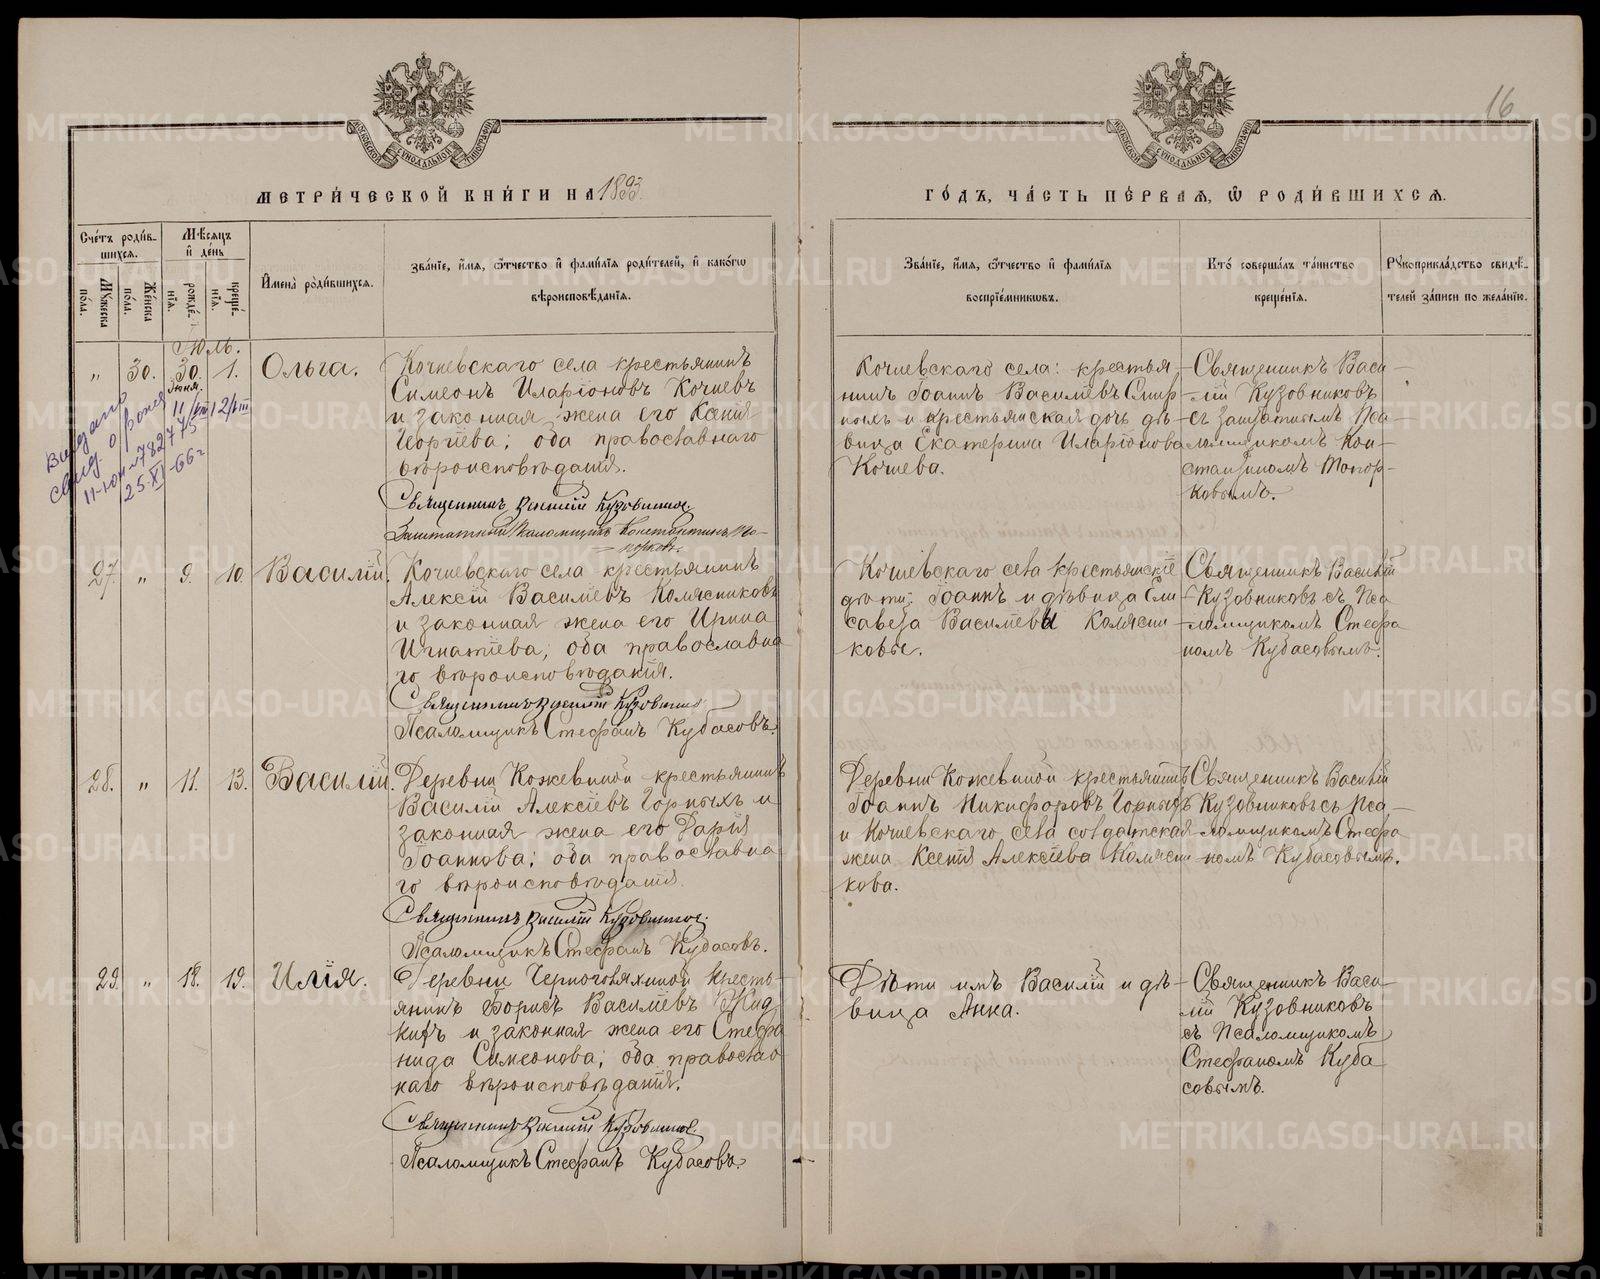 16
МОСКОВСКОЙ СѴНОДАЛЬНОЙ ТИПОГРАФІИ
МОСКОВСКОЙ СѴНОДАЛЬНОЙ ТИПОГРАФІИ
МЕТРИ́ЧЕСКОЙ КНИ́ГИ НА 1893.
ГО́ДЪ, ЧА́СТЬ ПЕ́РВАЯ, Ѽ РОДИ́ВШИХСЯ.
Сче́тъ роди́в-
шихся.
Му́жеска
по́ла.
Же́нска
по́ла.
Мѣ́сяцъ
и҆ де́нь
рожде́-
нїя.
креще́-
нїя.
И҆мена̀ роди́вшихся.
Зва́нїе, и҆́мя, ѻ҆́тчество и҆ фами́лїя роди́телей, и҆ како́гѡ
вѣроисповѣ́данїя.
Зва́нїе, и҆́мя, ѻ҆́тчество и҆ фами́лїя
воспрїе́мникѡвъ.
Кто̀ соверша́лъ та́инство
креще́нїя.
Рꙋкоприкла́дство свидѣ́-
телей за́писи по жела́нїю.
Юль.
" 30. 30. 1. Ольга.
Іюня.
Выдано
свид. о рожд
11-ЮА № 782775
25.XI-66 г
11/VII 12/VIII
Кочневскаго села крестьянинъ
Симеонъ Иларіоновъ Кочневъ
и законная жена его Ксенія
Георгіева; оба православнаго
вѣроисповѣданія.
Священникъ Василій Кузовниковъ.
Заштатный Псаломщикъ Константинъ То-
порковъ.
Кочневскаго села: крестья-
нинъ Іоаннъ Васильевъ Смир
ныхъ и крестьянская дочь дѣ-
вица Екатерина Иларіонова
Кочнева.
Священникъ Васи-
лій Кузовниковъ
съ Заштатнымъ Пса-
ломщикомъ Кон-
стантиномъ Топор-
ковымъ.
27. " 9. 10. Василій.
Кочневскаго села крестьянинъ
Алексій Василіевъ Колясниковъ
и законная жена его Ирина
Игнатіева; оба православна
го вѣроисповѣданія.
Священникъ Василій Кузовниковъ
Псаломщикъ Стефанъ Кубасовъ.
Кочневскаго села крестьянскіе
дѣти: Іоаннъ и дѣвица Ели
савета Василіевы Колясни
ковы.
Священникъ Василій
Кузовниковъ съ Пса
ломщикомъ Стефа
номъ Кубасовымъ.
28. " 11. 13. Василій.
Деревни Кожевиной крестьянинъ
Василій Алексіевъ Горныхъ и
законная жена его Дарія
Іоаннова; оба православна
го вѣроисповѣданія
Священникъ Василій Кузовниковъ.
Псаломщикъ Стефанъ Кубасовъ.
Деревни Кожевиной крестьянинъ
Іоаннъ Никифоровъ Горныхъ
и Кочневскаго села солдатская
жена Ксенія Алексіева Колясни
кова.
Священникъ Василій
Кузовниковъ съ Пса-
ломщикомъ Стефа
номъ Кубасовымъ.
29. " 18. 19. Илія.
Деревни Черноговяхиной кресть-
янинъ Борисъ Василіевъ
и законная жена его Стефа
нида Симеонова; оба православ
наго вѣроисповѣданія.
Священникъ Василій Кузовниковъ
Псаломщикъ Стефанъ Кубасовъ.
Дѣти имъ Василій и дѣ-
вица Анна.
Священникъ Васи-
лій Кузовниковъ
съ Псаломщикомъ
Стефаномъ Куба
совымъ.
METRIKI.GASO-URAL.RU